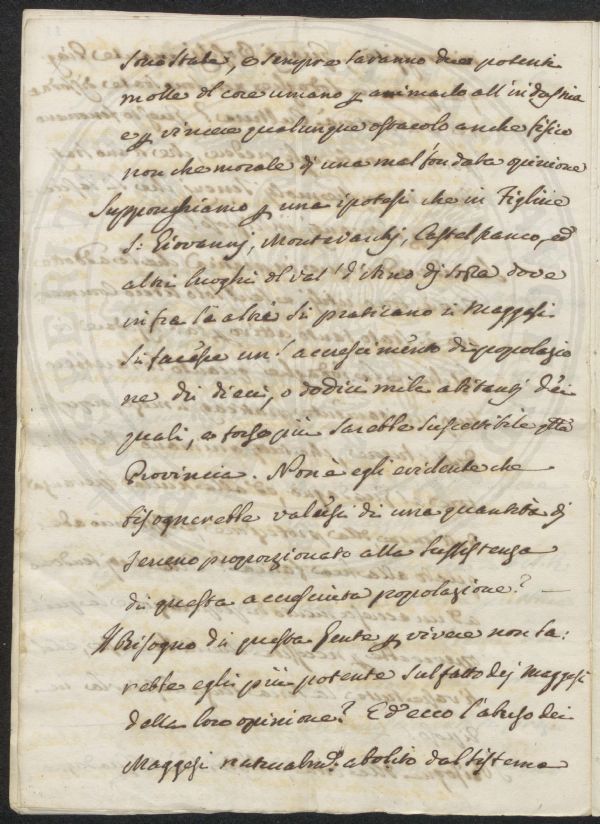 sono state, e sempre saranno due potenti
molle del core umano p animarlo all'industria
e p vincere qualunque ostacolo anche fisico
non che morale di una mal fondata opinione
Supponghiamo p una ipotesi che in Figline
S: Giovannj, Montevarchj, Castelfranco, ed
altri luoghi del Val' d'Arno dj sopra dove
infra le altre si praticano i Maggesi
si facesse un' accrescimento di popolazio
ne di dieci, o dodici mila abitantj dei
quali, e forse più sarebbe suscettibile
Provincia. Non è egli evidente che
bisognerebbe valersi di una quantità dj
terreno proporzionato alla sussistenza
di questa accresciuta popolazione? —
Il Bisogno di questa Gente p vivere non sa:
rebbe egli più potente sul fatto dej Maggesi
della loro opinione? Ed ecco l'abuso dei
Maggesi naturalmte abolito dal sistema